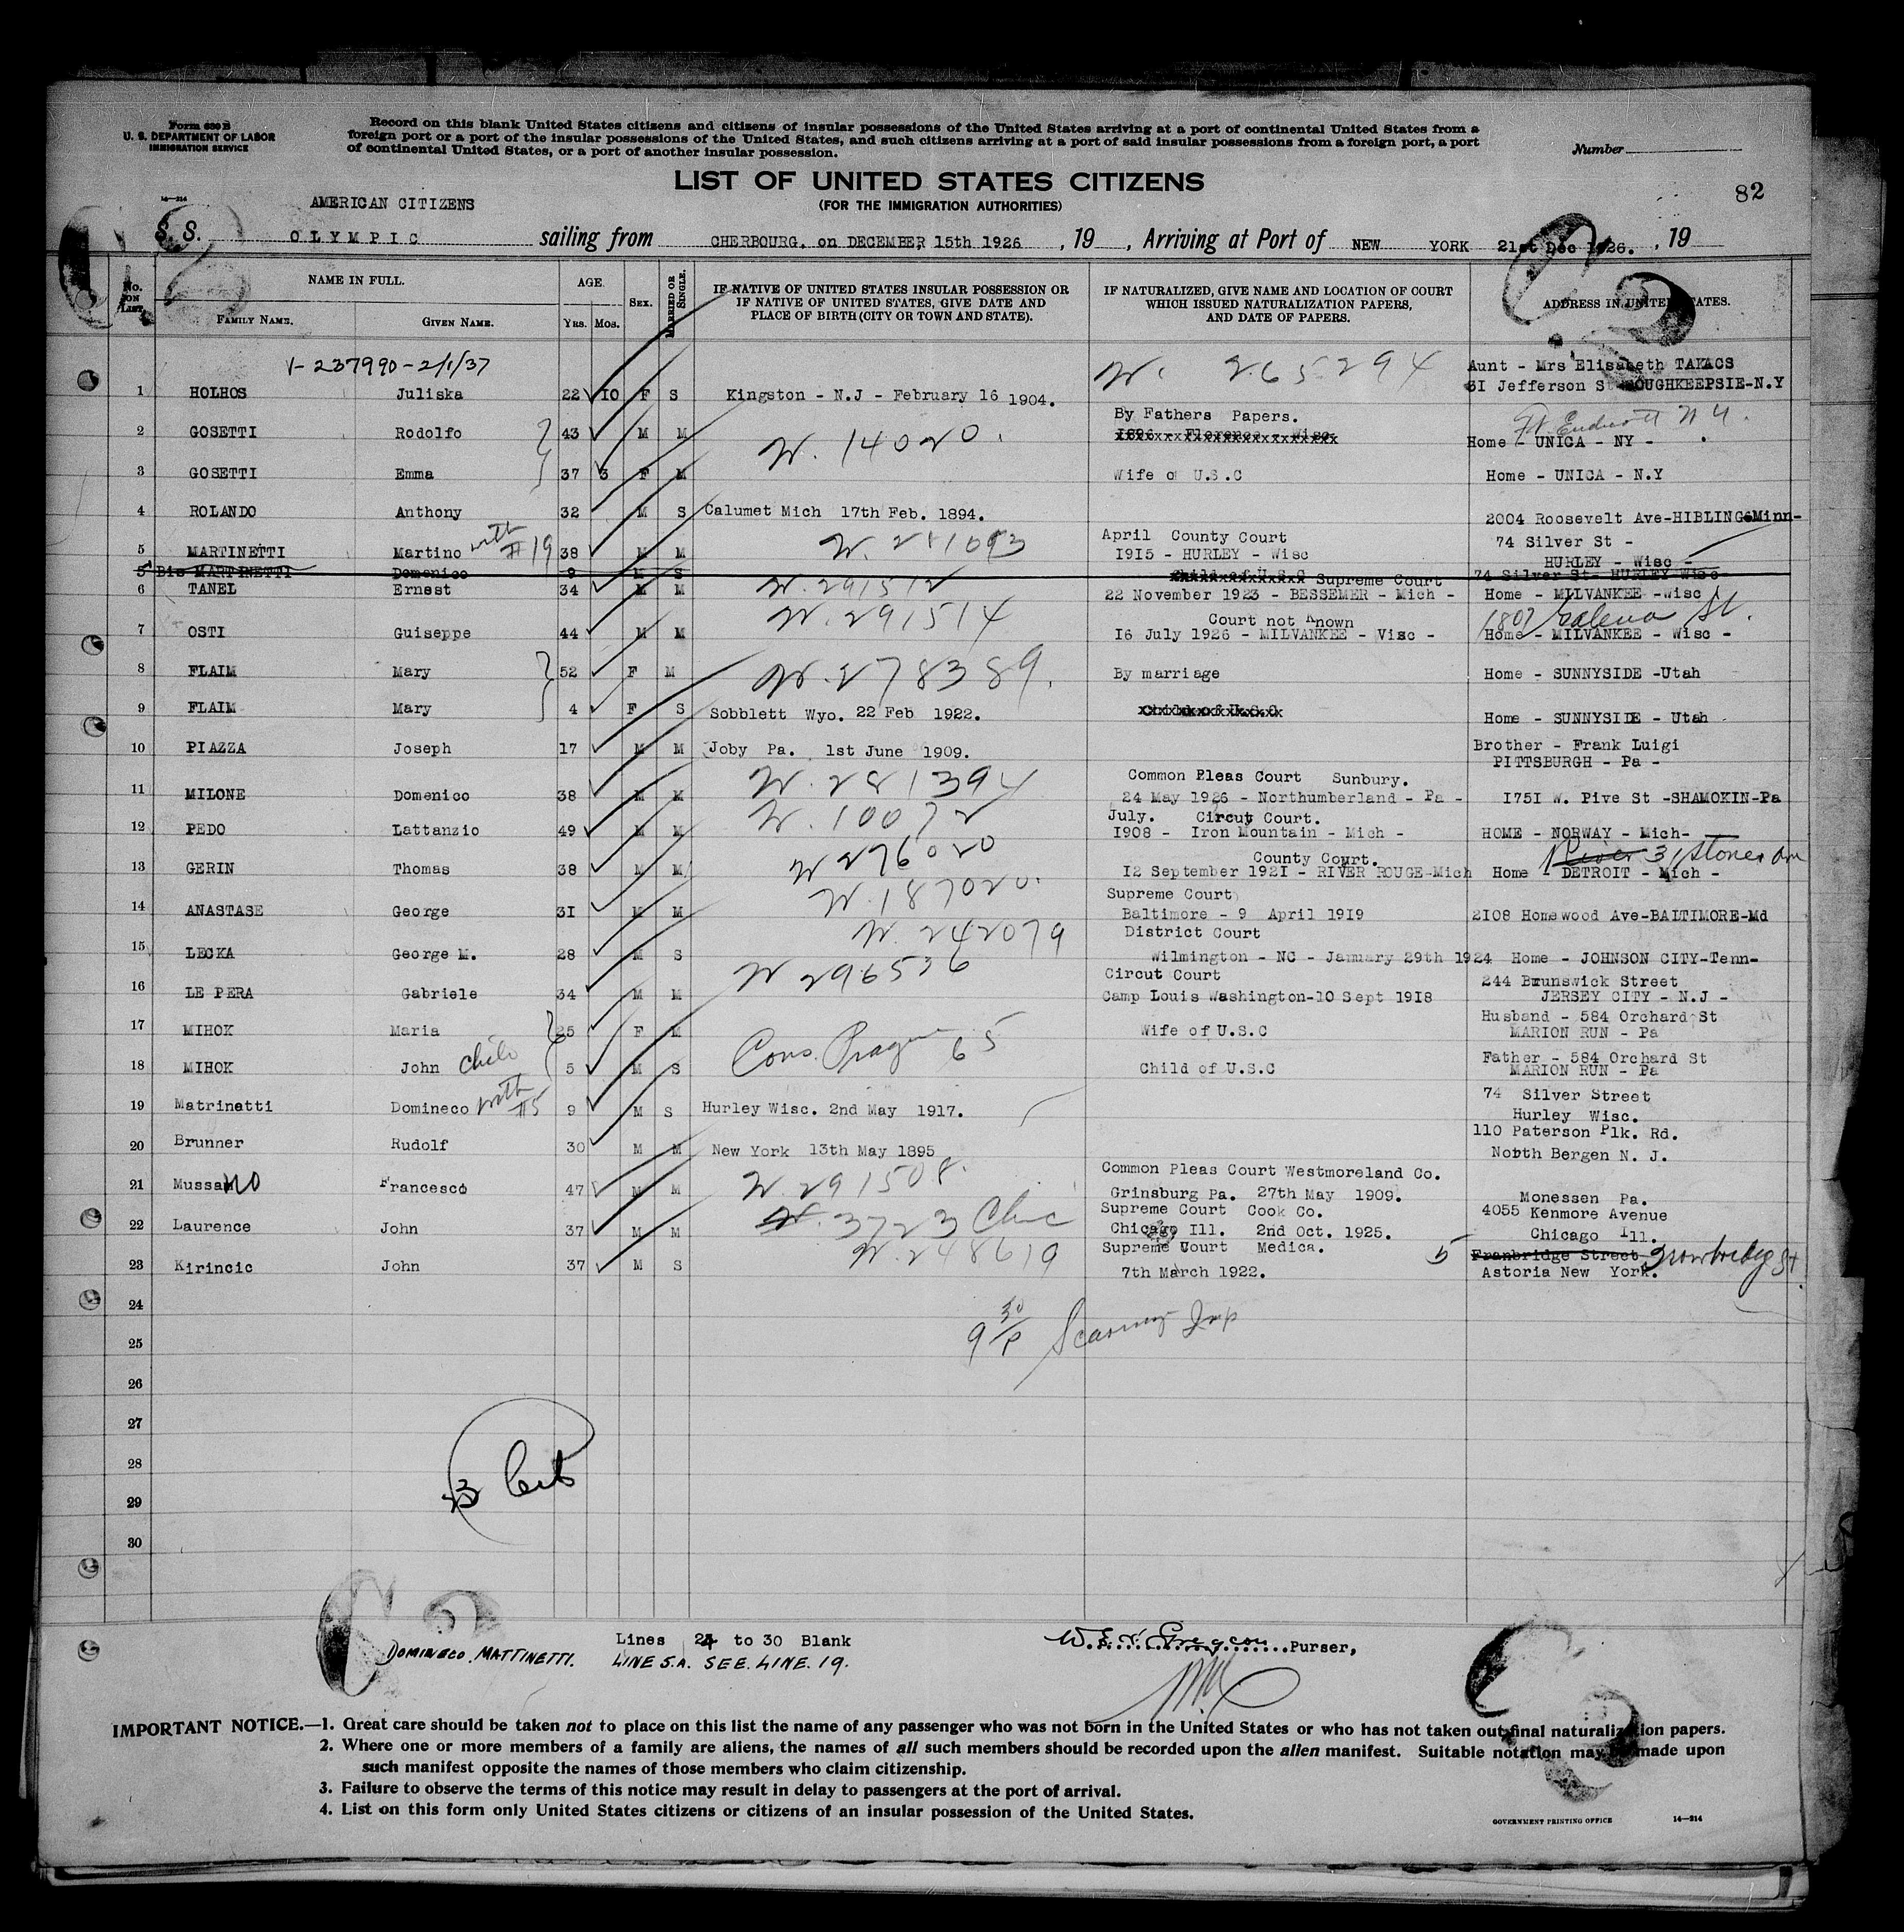 Form 630 B
U. S. DEPARTMENT OF LABOR
IMMIGRATION SERVICE
Record on this blank United States citizens and citizens of insular possessions of the United States arriving at a port of continental United States from a
foreign port or a port of the insular possessions of the United States, and such citizens arriving at a port of said insular possessions from a foreign port, a port
of continental United States, or a port of another insular possession.
Number
LIST OF UNITED STATES CITIZENS
(FOR THE IMMIGRATION AUTHORITIES)
82
14—214
AMERICAN CITIZENS
S. S. OLYMPIC sailing from CHERBOURG, on DECEMBER 15th 1926 , 19 , Arriving at Port of NEW YORK 21st Dec 1926. , 19
No. on List. NAME IN FULL. AGE. SEX. MARRIED OR SINGLE. IF NATIVE OF UNITED STATES INSULAR POSSESSION OR IF NATIVE OF UNITED STATES, GIVE DATE AND PLACE OF BIRTH (CITY OR TOWN AND STATE). IF NATURALIZED, GIVE NAME AND LOCATION OF COURT WHICH ISSUED NATURALIZATION PAPERS, AND DATE OF PAPERS. ADDRESS IN UNITED STATES.
FAMILY NAME. GIVEN NAME. YRS. MOS.
V-237990-2/1/37 N. 265294 Aunt - Mrs Elisabeth TAKACS
1 HOLHOS Juliska 22 10 F S Kingston - N.J - February 16 1904. 31 Jefferson St POUGHKEEPSIE-N.Y
By Fathers Papers.
2 GOSETTI Rodolfo 43 M M N. 14020. Home - UNICA - NY -
3 GOSETTI Emma 37 3 F M Wife of U.S.C Home - UNICA - N.Y
4 ROLANDO Anthony 32 M S Calumet Mich 17th Feb. 1894. 2004 Roosevelt Ave-HIBLING-Minn-
April County Court 74 Silver St -
5 MARTINETTI Martino with #19 38 M M 1915 - HURLEY - Wisc HURLEY - Wisc -
5 Bis MARTINETTI Domenico 9 M S Child of U.S.C 74 Silver St- HURLEY Wisc
Supreme Court
6 TANEL Ernest 34 M M N. 291512 22 November 1923 - BESSEMER - Mich - Home - MILVANKEE -Wisc
Court not known 1807 Galena St.
7 OSTI Guiseppe 44 M M N. 291514 16 July 1926 - MILVANKEE - Visc - Home - MILVANKEE - Wisc -
8 FLAIM Mary 52 F M N. 278389. By marriage Home - SUNNYSIDE -Utah
9 FLAIM Mary 4 F S Sobblett Wyo. 22 Feb 1922. Home - SUNNYSIDE - Utah
10 PIAZZA Joseph 17 M M Joby Pa. 1st June 1909. Brother - Frank Luigi
PITTSBURGH - Pa -
Common Pleas Court Sunbury.
11 MILONE Domenico 38 M M N. 281394 24 May 1926 - Northumberland - Pa - 1751 W. Pive St -SHAMOKIN-Pa
July. Circut Court.
12 PEDO Lattanzio 49 M M 1908 - Iron Mountain - Mich - HOME - NORWAY - Mich-
County Court.
13 GERIN Thomas 38 M M N 276020 12 September 1921 - RIVER ROUGE-Mich Home DETROIT - Mich -
Supreme Court
14 ANASTASE George 31 M M Baltimore - 9 April 1919 2108 Homewood Ave-BALTIMORE-Md
N. 242079 District Court
15 LECKA George M. 28 M S Wilmington - NC - January 29th 1924 Home - JOHNSON CITY-Tenn-
N 296536 Circut Court 244 Brunswick Street
16 LE PERA Gabriele 34 M M Camp Louis Washington-10 Sept 1918 JERSEY CITY - N.J -
Husband - 584 Orchard St
17 MIHOK Maria 25 F M Wife of U.S.C MARION RUN - Pa
Cons. Prague 65 Father - 584 Orchard St
18 MIHOK John Child 5 M S Child of U.S.C MARION RUN - Pa
74 Silver Street
19 Matrinetti Domineco with #5 9 M S Hurley Wisc. 2nd May 1917. Hurley Wisc.
110 Paterson Plk. Rd.
20 Brunner Rudolf 30 M M New York 13th May 1895 North Bergen N. J.
Common Pleas Court Westmoreland Co.
21 Mussano Francesco 47 M M N. 291508. Grinsburg Pa. 27th May 1909. Monessen Pa.
Supreme Court Cook Co. 4055 Kenmore Avenue
22 Laurence John 37 M M N. 3723 Chic Chicago Ill. 2nd Oct. 1925. Chicago Ill.
Supreme Court Medica. 5 Franbridge Street
23 Kirincic John 37 M S N. 248619 7th March 1922. Astoria New York.
24
25
26
27
28
29
30
Lines 24 to 30 Blank
DOMINECO. MATTINETTI. LINE 5.A. SEE. LINE. 19.
Purser,
IMPORTANT NOTICE.—1. Great care should be taken not to place on this list the name of any passenger who was not born in the United States or who has not taken out final naturalization papers.
2. Where one or more members of a family are aliens, the names of all such members should be recorded upon the alien manifest. Suitable notation may be made upon
such manifest opposite the names of those members who claim citizenship.
3. Failure to observe the terms of this notice may result in delay to passengers at the port of arrival.
4. List on this form only United States citizens or citizens of an insular possession of the United States.
GOVERNMENT PRINTING OFFICE 14—214